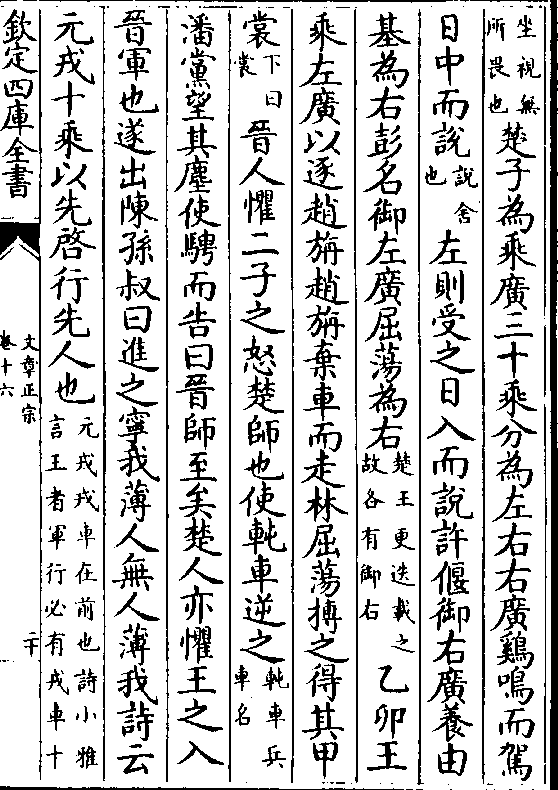 坐視無
所畏也
楚子為乘廣三十乘分為左右右廣鷄鳴而駕
日中而說
說舍
也
左則受之日入而說許偃御右廣養由
基為右彭名御左廣屈蕩為右
楚王更迭載之
故各有御右
乙卯王
乘左廣以逐趙旃趙旃棄車而走林屈蕩搏之得其甲
裳
下曰
裳
晉人懼二子之怒楚師也使軘車逆之
軘車兵
車名
潘黨望其塵使騁而告曰晉師至矣楚人亦懼王之入
晉軍也遂出陳孫叔曰進之寧我薄人無人薄我詩云
元戎十乘以先啓行先人也
元戎戎車在前也詩小雅
言王者軍行必有戎車十
欽定四庫全書
文章正宗
卷十六
二十